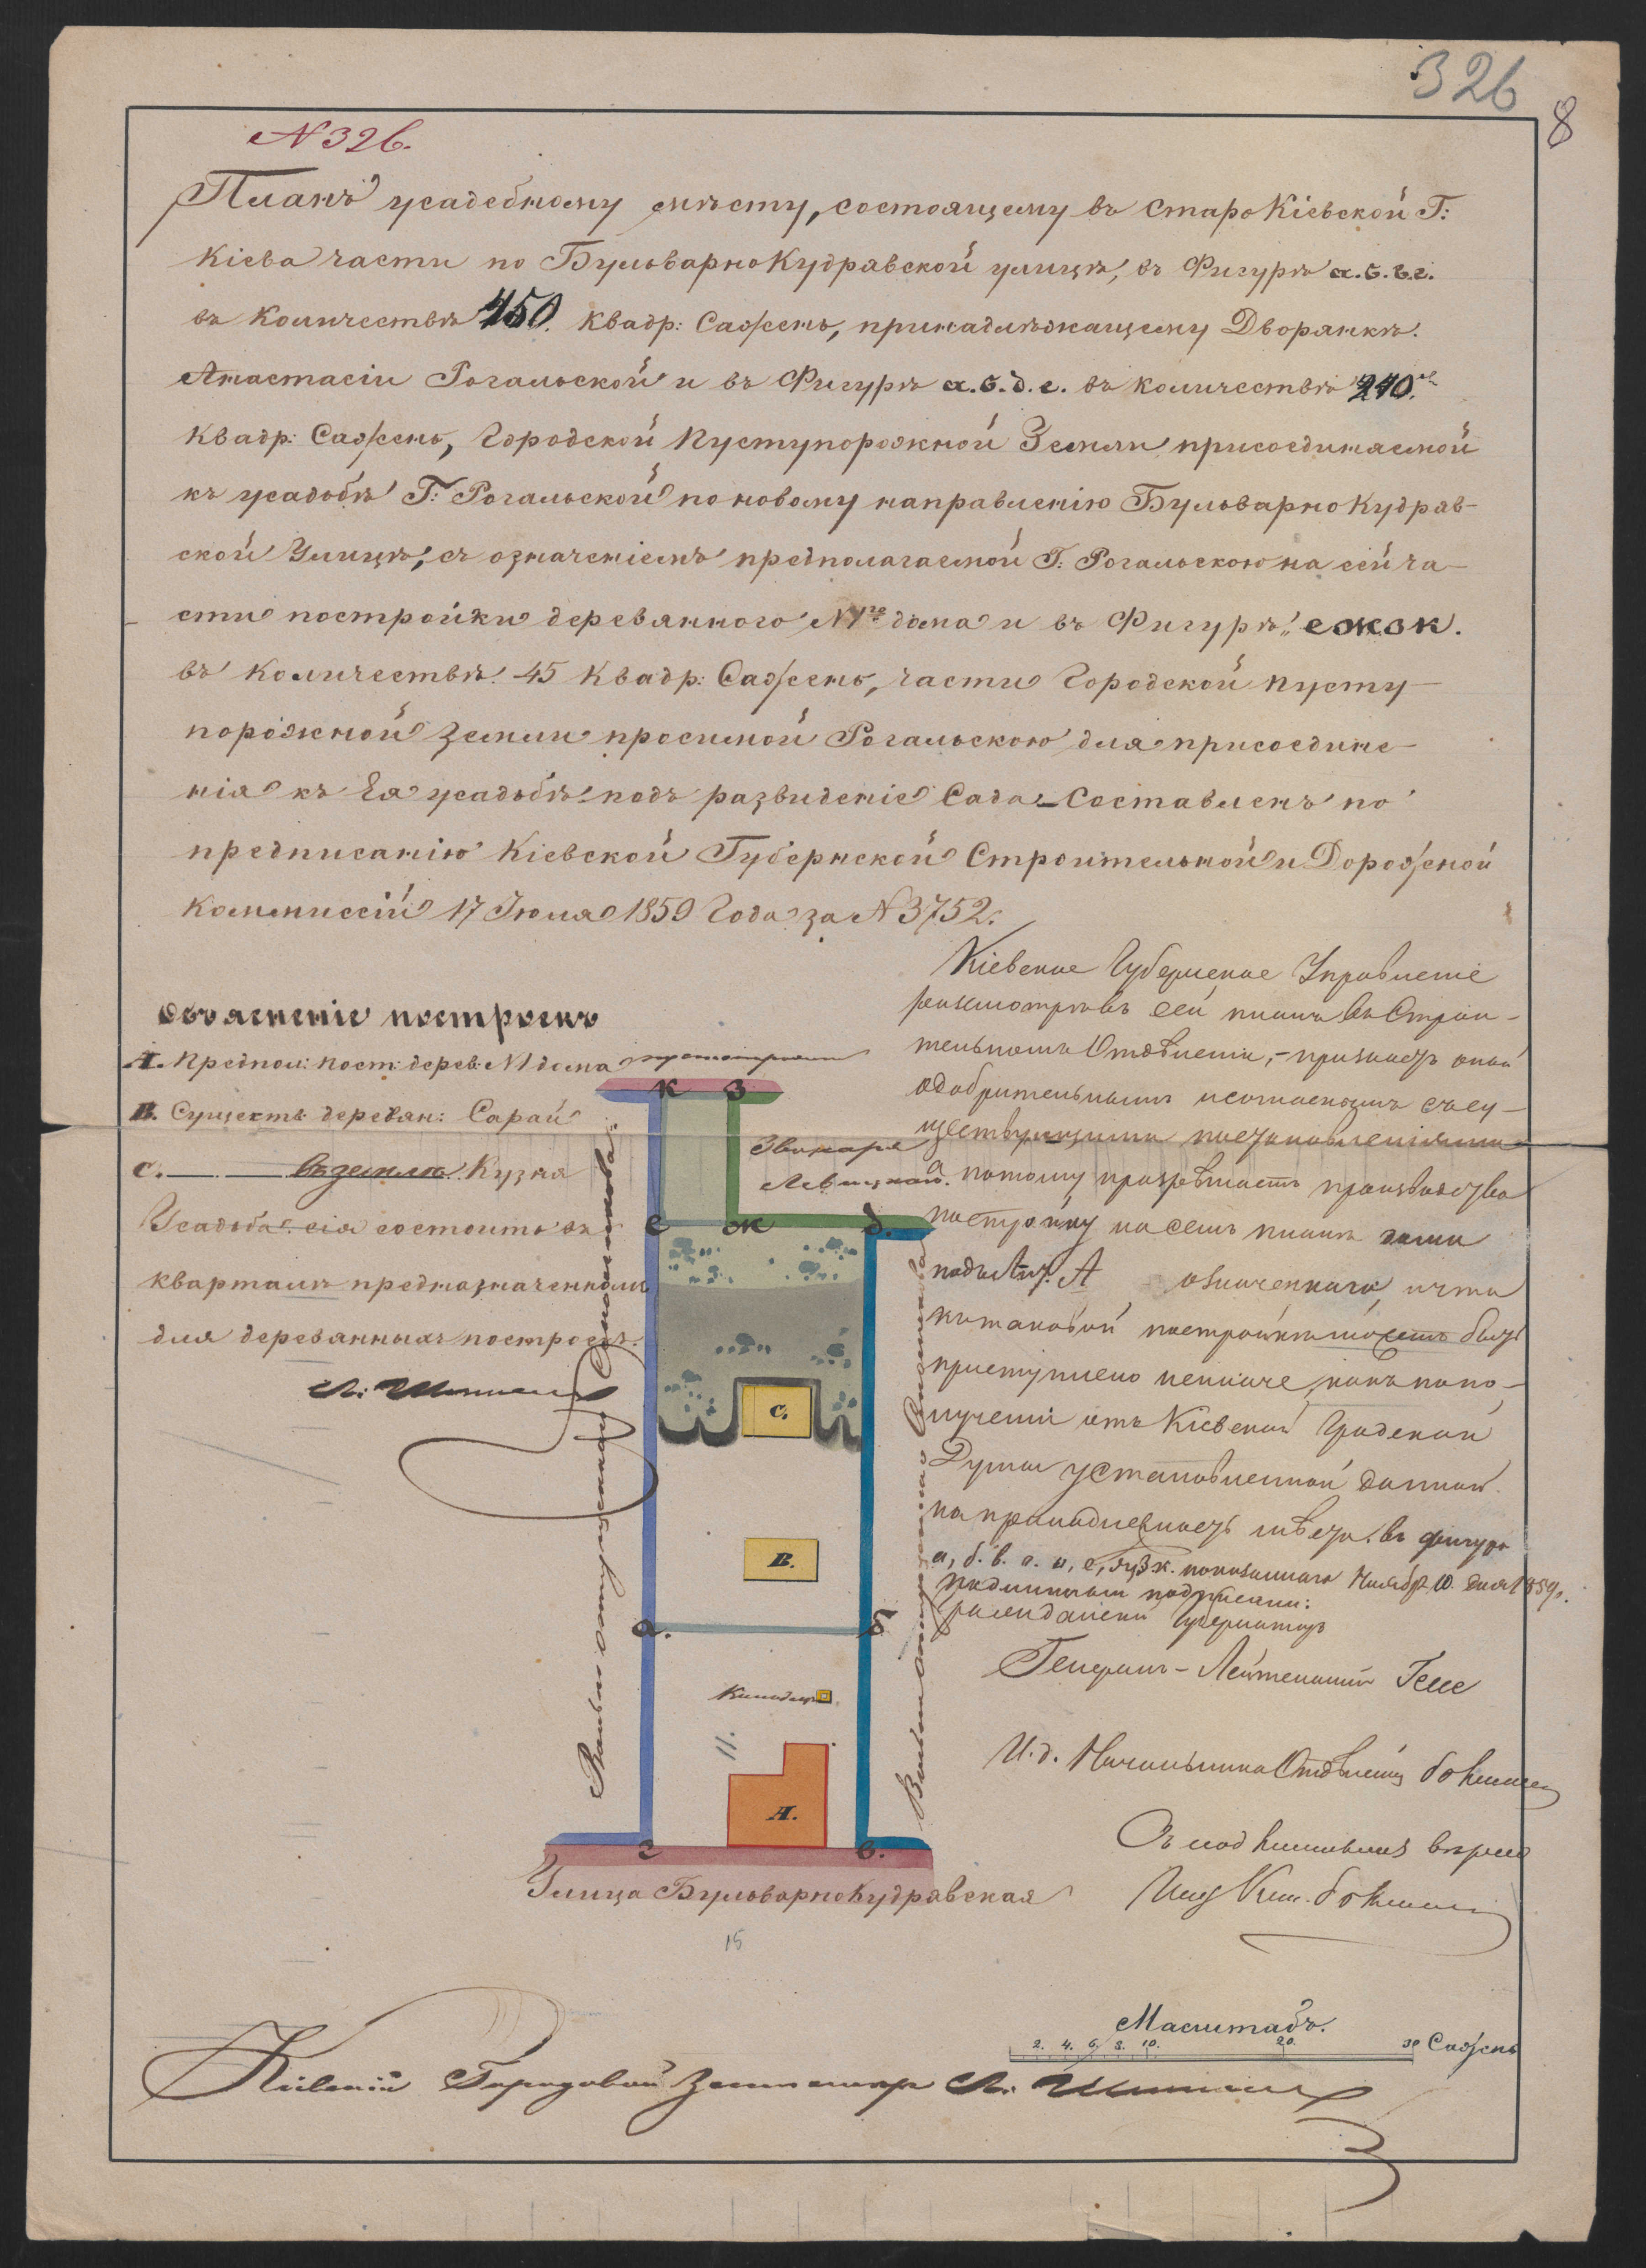 326
8
N 326.
Планъ усадебному мѣсту, состоящему въ Старокіевской Г:
Кіева части по БульварноКудравской улицѣ, въ Фигурѣ а.б.в.г.
въ количествѣ 450. Квадр: Сажень, принадлѣжащему Дворянкѣ.
Анастасіи Рогальской и въ Фигурѣ а.б.д.е. въ количествѣ 240.
Квадр: Сажень, Городской Пуступорожной Земли присоединяемой
къ усадьбѣ Г: Рогальской по новому направленію БульварноКудрав-
ской Улицѣ, съ означеніемъ предполагаемой Г: Рогальскою на сей ча-
сти постройки деревянного N1го дома и въ Фигурѣ, ежзк.
въ количествѣ 45 Квадр: Сажень, части Городской пусту-
порожной земли просимой Рогальскою для присоедине-
нія къ Ея усадьбѣ подъ развиденіе Сада. Составленъ по
предписанію Кіевской Губернской Строительной и Дорожной
Коммиссій 17 Іюля 1859 Года за N 3752.
Объясненіе построекъ
А. Предпол: пост: дерев: N1 дома
В. Существ: деревян: Сарай
С. въ землѣ Кузня
Усадьба сія состоитъ въ
кварталѣ предназначенномъ
для деревянныхъ построекъ.
Кіевское Губернское Управленіе
разсмотрѣвъ сей планъ въ Строи-
тельномъ Отдѣленіи, признаетъ оный
одобрительнымъ и согласнымъ съ су-
ществующими постановленіями
а потому разрѣшаетъ производство
постройки на семъ планѣ дома
подъ Лит. А означеннаго, и что
къ таковой постройкѣ можетъ быть
приступлено неиначе, какъ по по-
лученіи отъ Кіевской Градской
Думы установленной данной
на принадлежность мѣста въ фигурѣ
а, б. в. г. д, е, ж, з, к. показаннаго Ноября 10 дня 1859 г.
подлинный подписали:
Гражданскій Губернаторъ
Генералъ-Лейтенантъ Гессе
И. д. Начальника Отдѣленія
К З
Звонаря
Левицкаго.
е ж д.
С.
В.
а. б
Колодезь
11.
А.
г в.
Улица БульварноКудравская
15
Масштабъ.
2. 4. 6. 8. 10. 20. 30 Сажень
Кіевскій Городовой Землемѣръ